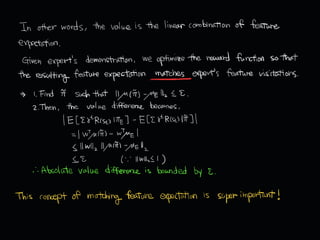 In other words, the value is the linear combination of feature
expectation.
Given expert's demonstration, we optimize the reward function so that
the resulting feature expectation matches expert's feature visitations.
→ 1. Find π̃ such that ‖μ(π̃) - μ_E‖₂ ≤ ε.
2. Then, the value difference becomes.
|E[ΣγᵗR(s_t)|π_E] - E[ΣγᵗR(s_t)|π̃]|
= |wᵀμ(π̃) - wᵀμ_E|
≤ ‖w‖₂ ‖μ(π̃) - μ_E‖₂
≤ ε (∵ ‖w‖₂ ≤ 1)
∴ Absolute value difference is bounded by ε.
This concept of matching feature expectation is super important!